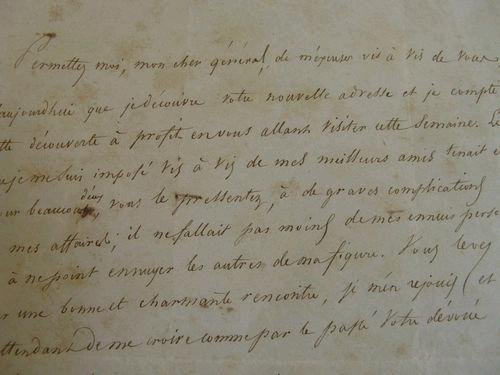 Permettez moi, mon cher général, de m'excuser vis à vis de vous
aujourdhui que je découvre votre nouvelle adresse et je compte
découverte à profit en vous allant visiter cette semaine. Le
que je me suis imposé vis à vis de mes meilleurs amis tenait
pour beaucoup, vous le pressentez, à de graves complications
mes affaires; il ne fallait pas moins de mes ennuis perso
à ne point ennuyer les autres de ma figure. Vous
une bonne et charmante rencontre, je m'en rejouis (et
attendant de me croire comme par le passé Votre dévoué